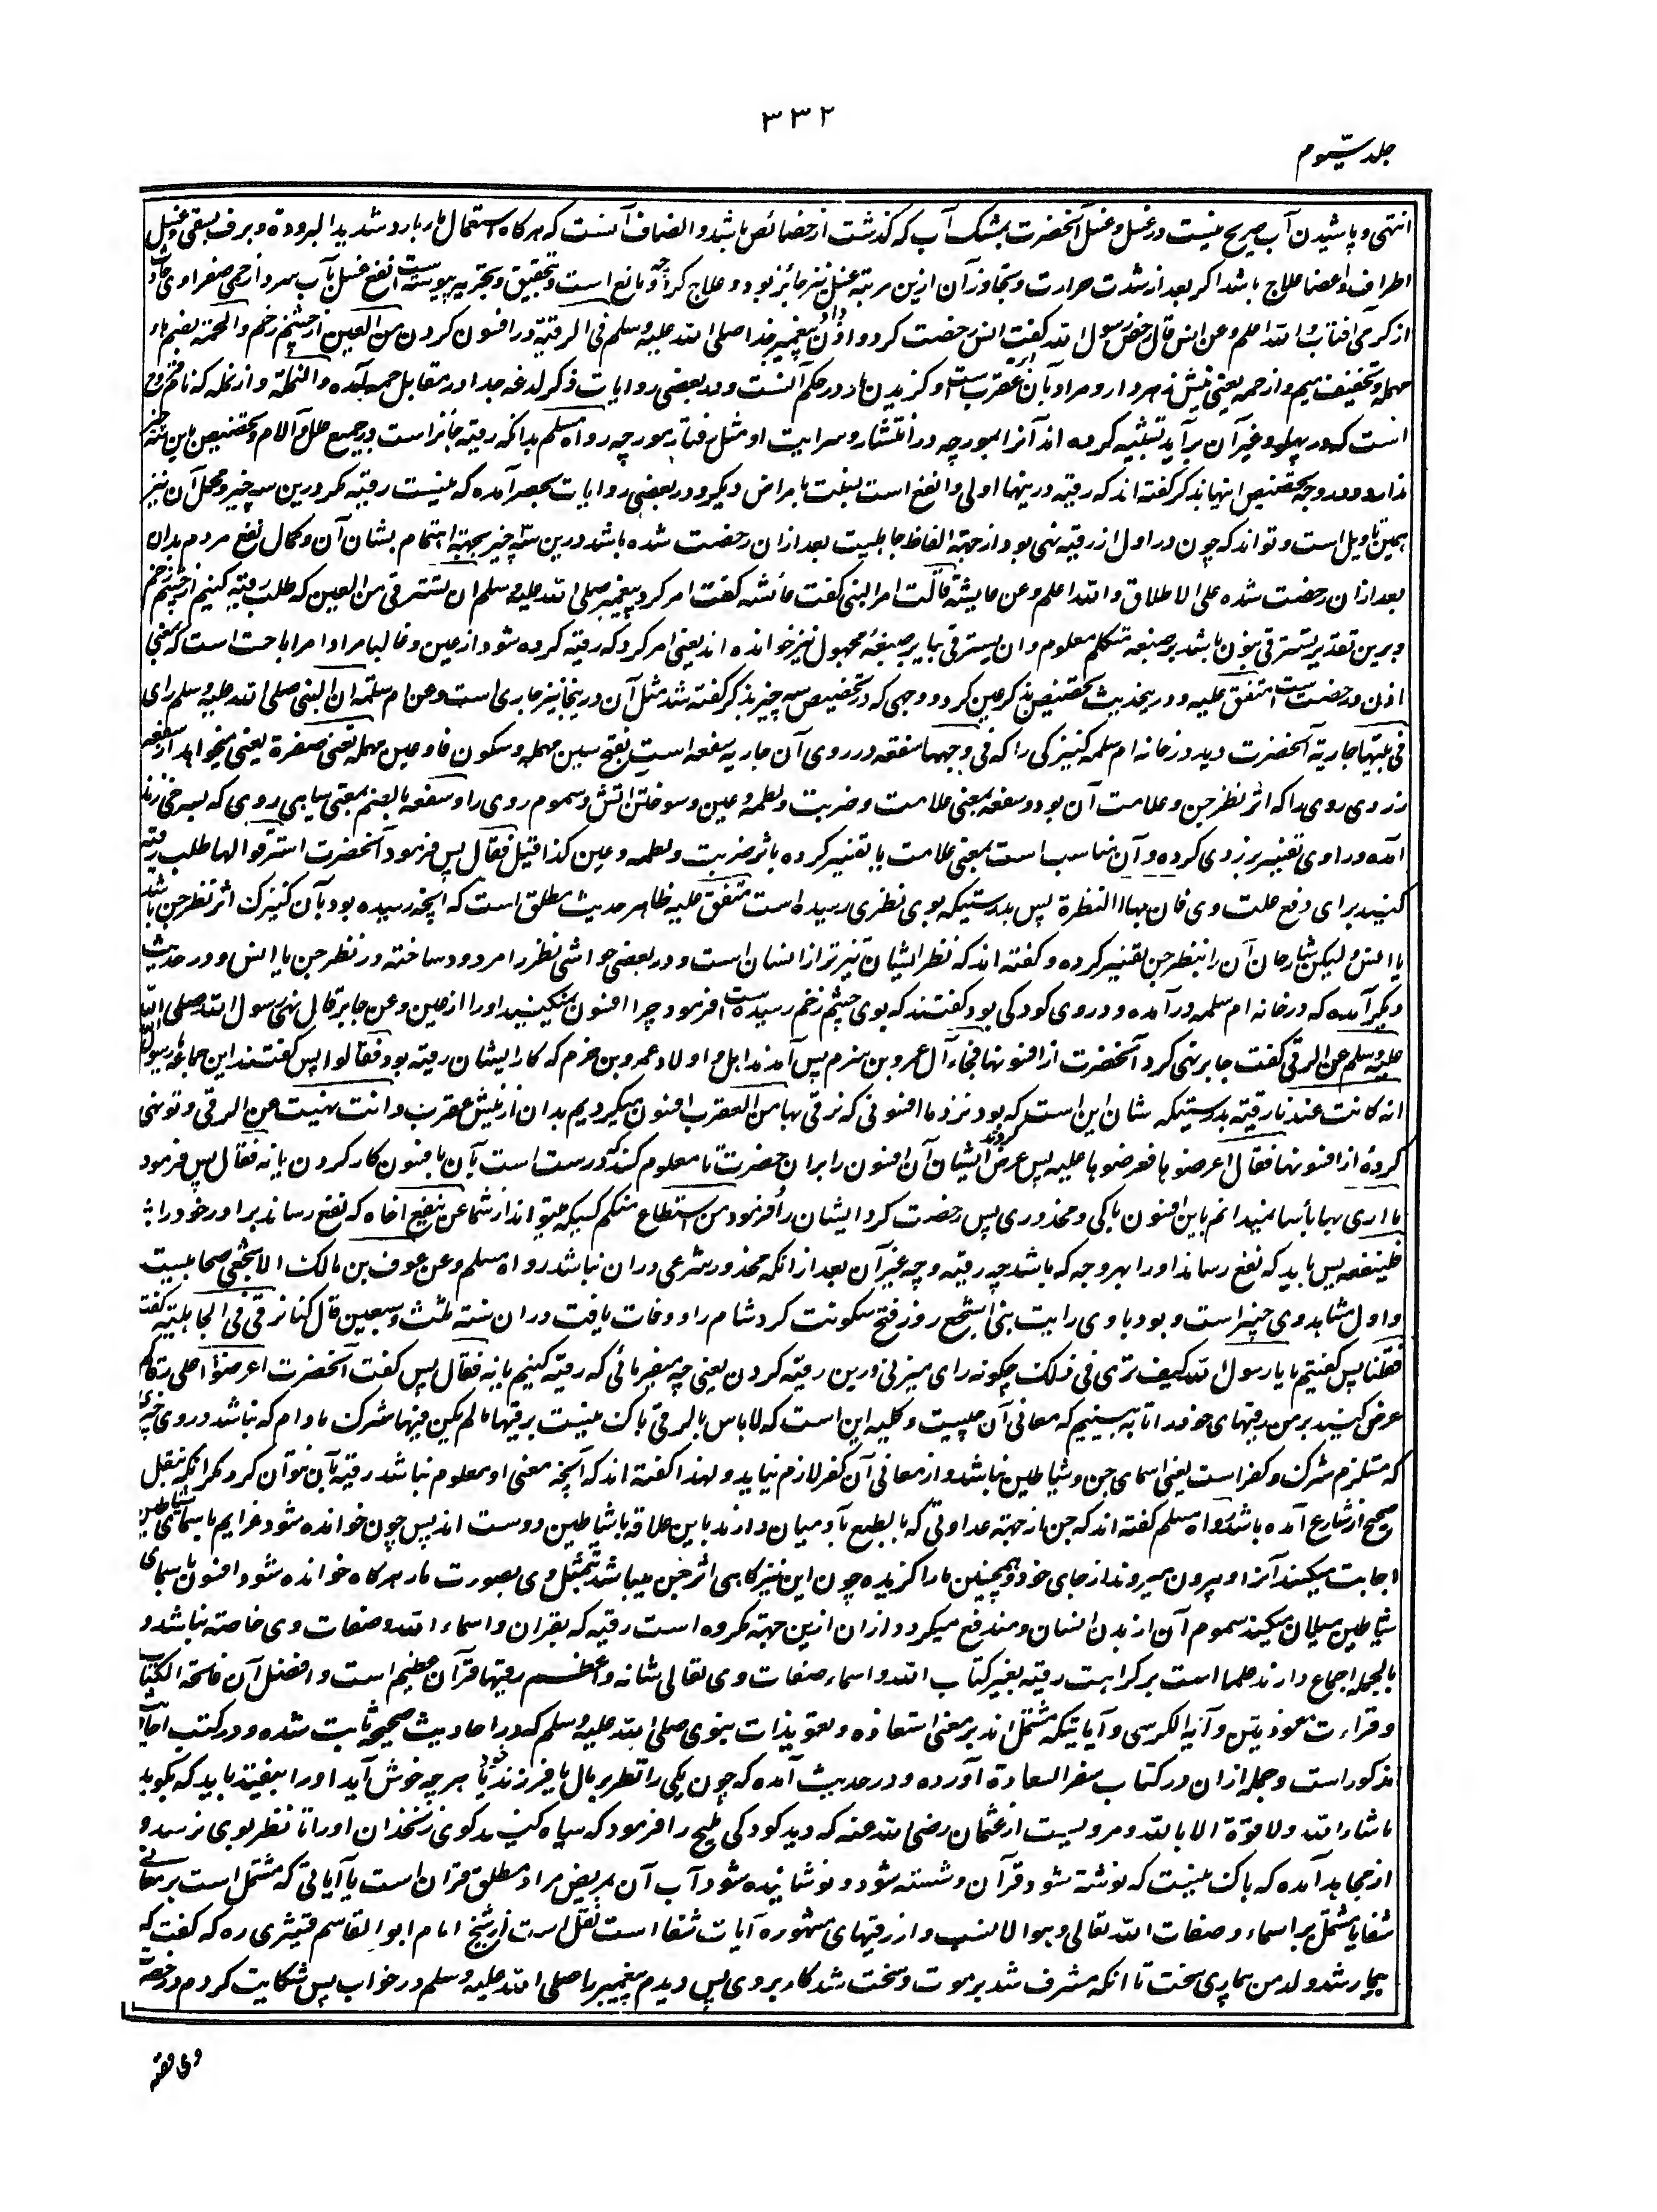 ٣٣٢
جلد سیوم
انتهی و پاشیدن آب صریح نیست در غسل و غسل آنحضرت بمشک آب که گذشت از خصائص باشد و انصاف آنست که هرگاه استعمال بارد شدید البرودة و برف بسقی و غسل
اطراف و اعضا علاج باشد اگر بعد از شدت حرارت و تجاوز آن ازین مرتبه غسل نیز جائز بود و علاج گردد چه مانع است و بتحقیق و تجربه پیوسته است انفع غسل بآب سرد از حمی صفراوی حادث
از گرمی آفتاب و الله اعلم وعن انس قال رخص رسول الله گفت انس رخصت کرد و اذن داد پیغمبر خدا صلی الله علیه وسلم فی الرقیة در افسون کردن من العین از چشم زخم والحمة بضم حاء
مهمله و تخفیف میم و از حمه یعنی نیش زهردار و مراد بآن ابره عقرب ست و گزیدن مار در حکم آنست و در بعضی روایات ذکر لدغه جدا و در مقابل حمه آمده والنملة و از نمله که نام قروح
است که در پهلو و غیر آن برآید تشبیه کرده اند آنرا بمورچه در انتشار و سرایت او مثل رفتار مورچه رواه مسلم بدانکه رقیه جائز است در جمیع علل و آلام و تخصیص باین سه چیز
ندارد و وجه تخصیص اینها بذکر گفته اند که رقیه درینها اولی و انفع است بنسبت بامراض دیگر و در بعضی روایات بحصر آمده که نیست رقیه مگر درین سه چیز و محمل آن نیز
همین تاویل است و تواند که چون در اول از رقیه نهی بود از جهة الفاظ جاهلیت بعد ازان رخصت شده باشد درین سه چیز بجهة اهتمام بشان آن و کمال نفع مردم بدان
بعد ازان رخصت شده علی الاطلاق و الله اعلم وعن عایشة قالت امر النبی گفت عائشه گفت امر کرد پیغمبر صلی الله علیه وسلم ان نسترقی من العین که طلب رقیه کنیم از چشم زخم
و برین تقدیر نسترقی بنون باشد بر صیغه متکلم معلوم و ان یسترقی بیا بر صیغۀ مجهول نیز خوانده اند یعنی امر کرد که رقیه کرده شود از عین و غالبا مراد امر اباحت است که بمعنی
اذن و رخصت ست متفق علیه و در یحدیث تخصیص بذکر عین کرد و وجهی که در تخصیص سه چیز بذکر گفته شد مثل آن درینجا نیز جاری است وعن ام سلمة ان النبی صلی الله علیه وسلم رای
فی بیتها جاریة آنحضرت دید در خانه ام سلمه کنیزکی را که فی وجهها سفعة در روی آن جاریه سفعه است بفتح سین مهمله و سکون فا و عین مهمله تعنی صفرة یعنی میخواهد از سفعه
زردی روی را که اثر نظر جن و علامت آن بود و سفعه بمعنی علامت و ضربت و لطمه و عین و سوختن آتش و سموم روی را و سفعه بالضم بمعنی سیاهی روی که بسرخی زند
آمده و راوی تفسیر بزردی کرده و آن مناسب است بمعنی علامت یا تفسیر کرده باثر ضربت و لطمه و عین کذا قیل فقال پس فرمود آنحضرت استرقوا لها طلب رقیه
کنید برای دفع علت وی فان بها النظرة پس بدرستیکه بوی نظری رسیده است متفق علیه ظاهر حدیث مطلق است که آنچه رسیده بود بآن کنیزک اثر نظر جن باشد
یا انس و لیکن شارحان آن را بنظر جن تفسیر کرده و گفته اند که نظر ایشان تیزتر از انسان است و در بعضی حواشی نظر را مردود ساخته در نظر جن یا انس و در حدیث
دیگر آمده که در خانه ام سلمه درآمده و در وی کودکی بود گفتند که بوی چشم زخم رسیده ست فرمود چرا افسون نمیکنید او را از عین وعن جابر قال نهی رسول الله صلی الله
علیه وسلم عن الرقی گفت جابر نهی کرد آنحضرت از افسونها فجاء آل عمرو بن حزم پس آمدند اهل و اولاد عمرو بن حزم که کار ایشان رقیه بود فقالوا پس گفتند این جماعه یا رسول الله
انه کانت عندنا رقیة بدرستیکه شان این است که بود نزد ما افسونی که نرقی بها من العقرب افسون میکردیم بدان از نیش عقرب وانت نهیت عن الرقی و تو نهی
کردۀ از افسونها فقال اعرضوها فعرضوها علیه پس عرض کردند ایشان آن افسون را بران حضرت تا معلوم کند که درست است بآن یا فسون کار کردن یا نه فقال پس فرمود
ما اری بها بأسا نمیدانم باین افسون باکی و محذوری پس رخصت کرد ایشان را و فرمود من استطاع منکم کسیکه میتواند از شما ان ینفع اخاه که نفع رساند برادر خود را
فلینفعه پس باید که نفع رساند او را بهر وجه که باشد چه رقیه و چه غیر آن بعد از انکه محذور شرعی در ان نباشد رواه مسلم وعن عوف بن مالک الاشجعی صحابیست
و اول مشاهد وی خیبر است و بود با وی رایت بنی اشجع روز فتح سکونت کرد شام را و وفات یافت در ان سنة ثلث و سبعین قال کنا نرقی فی الجاهلیة گفت
فقلنا پس گفتیم ما یا رسول الله کیف تری فی ذلک چگونه رای میزنی درین رقیه کردن یعنی چه میفرمائی که رقیه کنیم یا نه فقال پس گفت آنحضرت اعرضوا علی رقاکم
عرض کنید بر من رقیهای خود را تا به بینیم که معانی آن چیست و کلیه این است که لا باس بالرقی باک نیست برقیها ما لم یکن فیها شرک مادام که نباشد در وی چیزی
که مستلزم شرک و کفر است یعنی اسمای جن و شیاطین نباشد و از معانی آن کفر لازم نیاید و لهذا گفته اند که آنچه معنی او معلوم نباشد رقیه بآن نتوان کرد مگر آنکه بنقل
صحیح از شارع آمده باشد رواه مسلم گفته اند که جن از جهة عداوتی که بالطبع بآدمیان دارند باین علاقه باشیاطین دوست اند پس چون خوانده شود عزایم باسمای شیاطین
اجابت میکنند آنرا و بیرون میروند از جای خود و همچنین مار گزیده چون این نیز گاهی اثر جن میباشد بتمثل وی بصورت مار هرگاه خوانده شود افسون باسمای
شیاطین سیلان میکند سموم آن از بدن انسان و مندفع میگردد ازان ازین جهة مکروه است رقیه که بقران و اسماء الله و صفات وی خاصة نباشد و
بالجمله اجماع دارند علما است بر کراهت رقیه بغیر کتاب الله و اسماء صفات وی تعالی شانه و اعظم رقیها قرآن عظیم است و افضل آن فاتحة الکتاب
و قراءت معوذتین و آیة الکرسی و آیاتیکه مشتمل اند بر معنی استعاذه و تعویذات نبوی صلی الله علیه وسلم که در احادیث صحیحه ثابت شده و در کتب احادیث
مذکور است و جمله ازان در کتاب سفر السعادة آورده و در حدیث آمده که چون یکی را نظر بر مال یا فرزند خود یا هر چه خوش آید او را بیفتد باید که بگوید
ماشاء الله ولا قوة الا بالله و مرویست از عثمان رضی الله عنه که دید کودکی ملیح را فرمود که سیاه کنید گوی زنخدان او را تا نظر بوی نرسد و
از مجاهد آمده که باک نیست که نوشته شود قرآن و شسته شود و نوشانیده شود آب آن بمریض مراد مطلق قران است یا آیاتی که مشتمل است بر معانی
شفا یا مشتمل بر اسماء و صفات الله تعالی و هو الانسب و از رقیهای مشهوره آیات شفا است نقل است از شیخ امام ابوالقاسم قشیری ره که گفت که
بیمار شد ولد من بیماری سخت تا انکه مشرف شد بر موت و سخت شد کار بر وی پس دیدم پیغمبر را صلی الله علیه وسلم در خواب پس شکایت کردم در حضرت